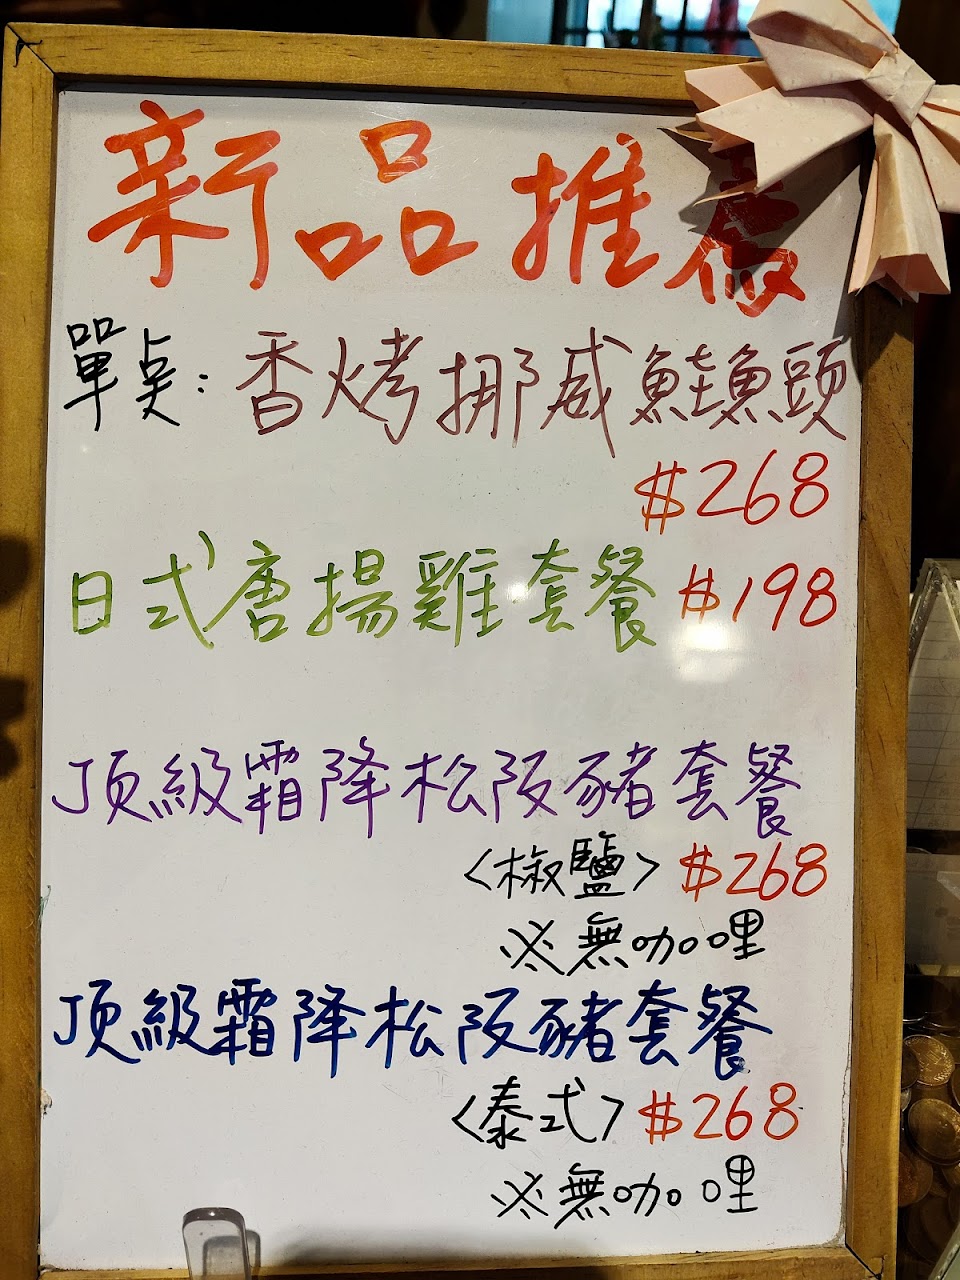 新品推薦
單点:香烤挪威鮭魚頭
$268
日式唐揚雞套餐 $198
頂級霜降松阪豬套餐
<椒鹽> $268
※無咖哩
頂級霜降松阪豬套餐
<泰式> $268
※無咖哩